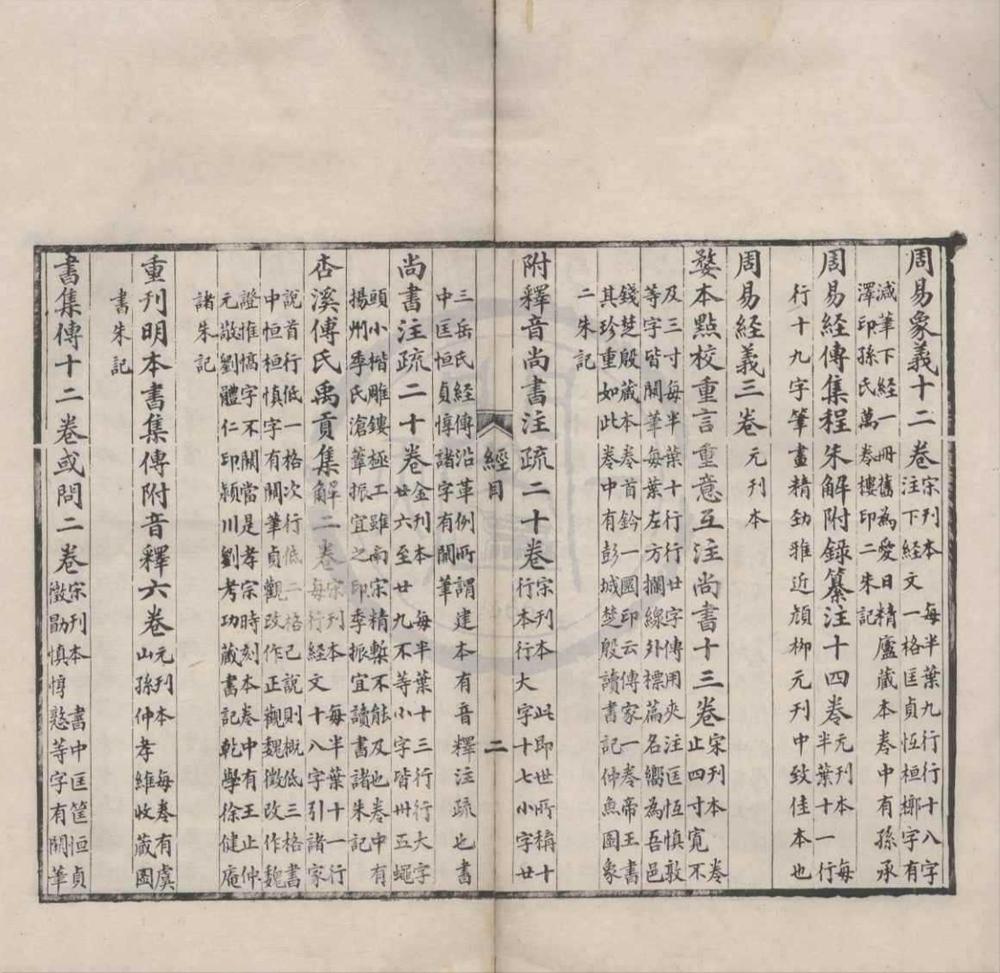 周易象義十二卷宋刊本 每半葉九行行十八字
注下經文一格匡貞恆桓槨字有
減筆下經一冊舊為愛日精廬藏本卷中有孫承
澤印孫氏萬卷樓印二朱記
周易經傳集程朱解附錄纂注十四卷元刊本 每
半葉十一行
行十九字筆畫精勁雅近顏柳元刊中致佳本也
周易經義三卷 元刊本
婺本點校重言重意互注尚書十三卷宋刊本 卷
止四寸寬不
及三寸每半葉十行行廿字傳用夾注匡恆慎敦
等字皆闕筆每葉左方攔線外標篇名嚮為吾邑
錢楚殷藏本卷首鈐一圓印云傳家一卷帝王書
其珍重如此卷中有彭城楚殷讀書記仲魚圖象
二朱記
附釋音尚書注疏二十卷宋刊本 此即世所稱十
行本行大字十七小字廿
經目 二
三岳氏經傳沿革例所謂建本有音釋注疏也書
中匡恒貞惇諸字有闕筆
尚書注疏二十卷金刊本 每半葉十三行行大字
廿六至廿九不等小字皆卅五蠅
頭小楷雕鏤極工雖南宋精槧不能及也卷中有
揚州季氏滄葦振宜之印季振宜讀書諸朱記
杏溪傅氏禹貢集解二卷宋刊本 每半葉十一行
每行經文十八字引諸家
說首行低一格次行低二格己說則概低三格書
中恒桓慎字有闕筆貞觀改作正觀魏徵改作魏
證惟惇字不闕當是孝宗時刻本卷中有王止仲
元敬劉體仁印潁川劉考功藏書記乾學徐健庵
諸朱記
重刊明本書集傳附音釋六卷元刊本 每卷有虞
山孫仲孝維收藏圖
書朱記
書集傳十二卷或問二卷宋刊本 書中匡筐恒貞
徵勖慎惇慜等字有闕筆